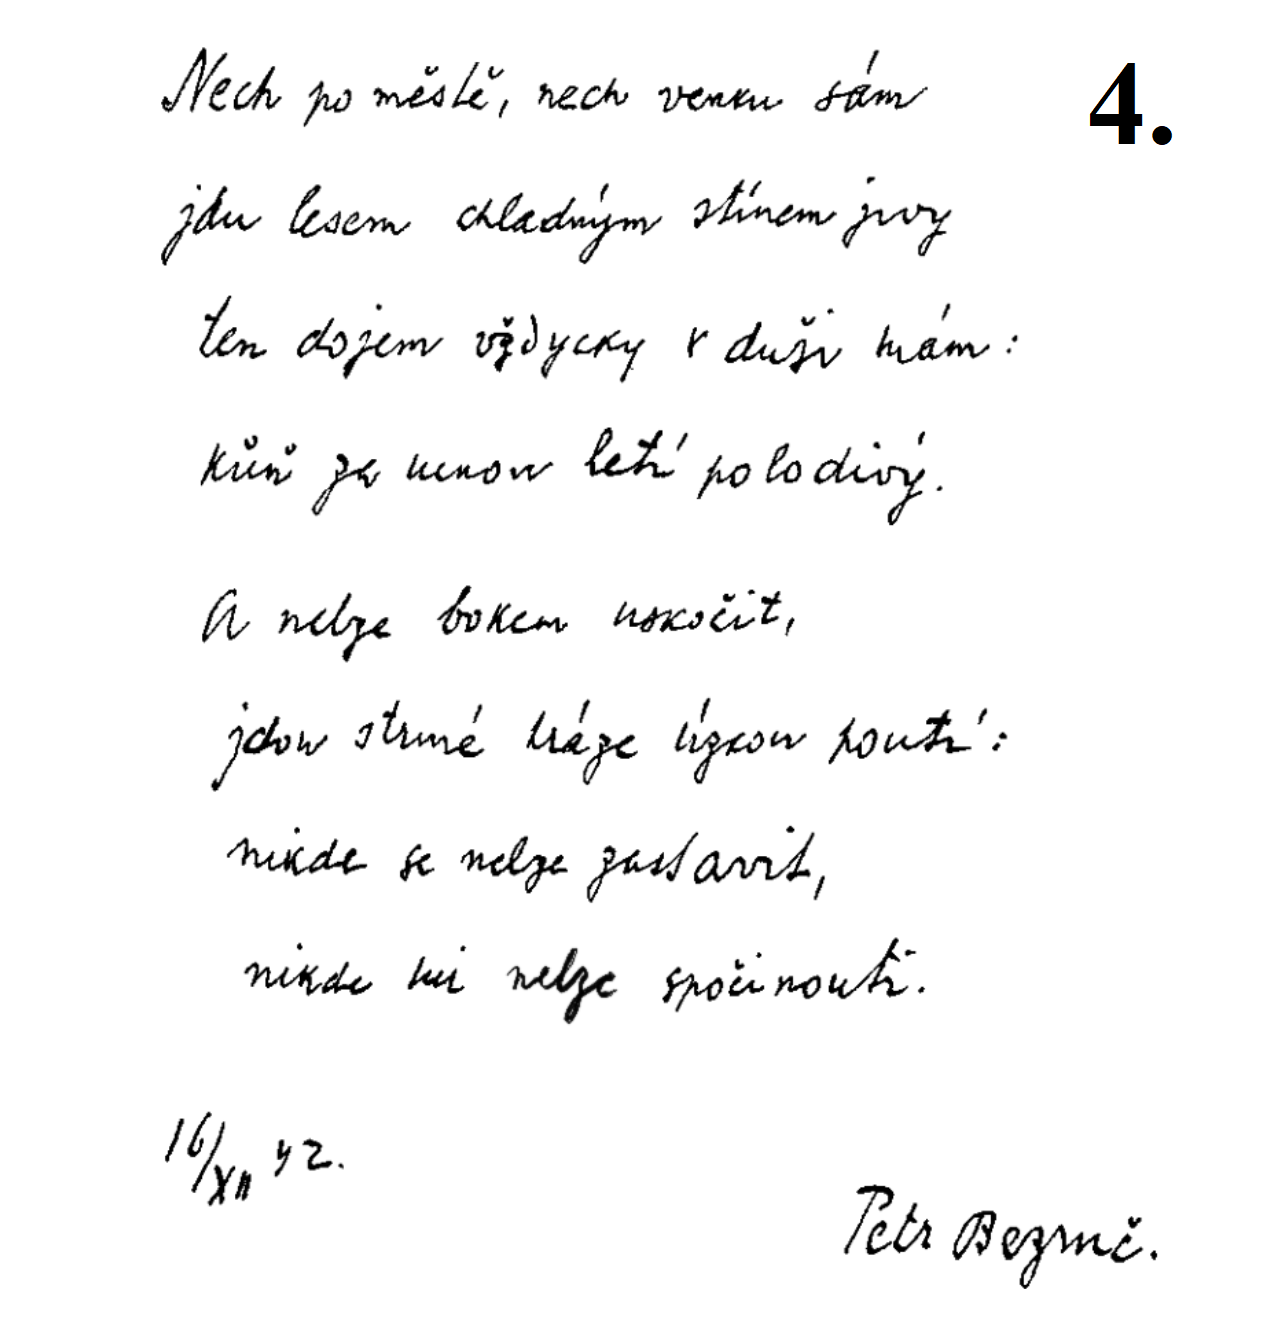 Nech po městě, nech venku sám
4.
jdu lesem chladným stínem jívy
ten dojem vždycky v duši mám:
kůň za mnou letí polodivý.
A nelze bokem uskočit,
jdou strmé hráze úzkou poutí:
nikde se nelze zastavit,
nikde mi nelze spočinouti.
16/XII 42.
Petr Bezruč.